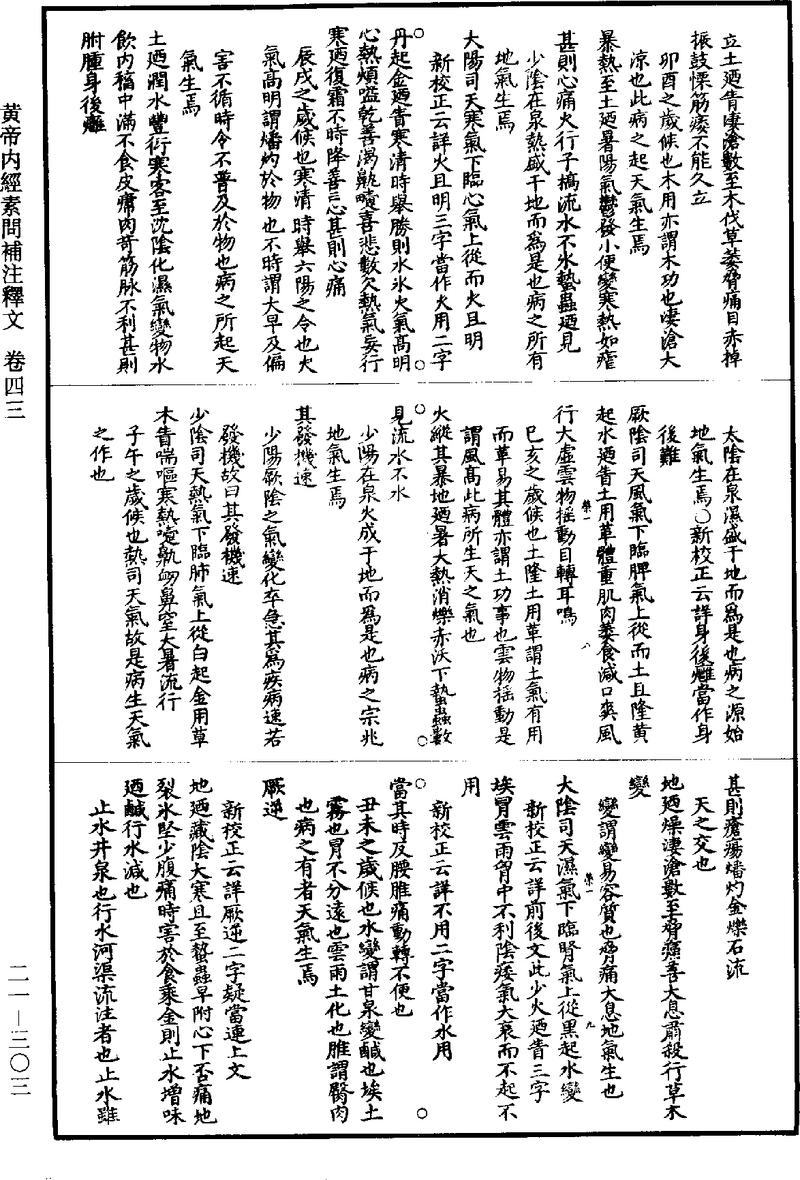 立土廼眚淒滄數至木伐草萎脅痛目赤掉
振鼓慄筋痿不能久立
卯酉之歲候也木用亦謂木功也淒滄大
涼也此病之起天氣生焉
暴熱至土廼暑陽氣鬱發小便變寒熱如瘧
甚則心痛火行于槁流水不氷蟄蟲廼見
少陰在泉熱盛于地而爲是也病之所有
地氣生焉
大陽司天寒氣下臨心氣上從而火且明
新校正云詳火且明三字當作火用二字
丹起金廼眚寒清時舉勝則水氷火氣高明
心熱煩嗌乾善渴鼽嚏喜悲數欠熱氣妄行
寒廼復霜不時降善忘甚則心痛
辰戌之歲候也寒清時舉六陽之令也火
氣高明謂燔灼於物也不時謂大早及偏
害不循時令不普及於物也病之所起天
氣生焉
土廼潤水豐衍寒客至沈陰化濕氣變物水
飲内稸中滿不食皮𤸷肉苛筋脉不利甚則
胕腫身後癰
太陰在泉濕盛于地而爲是也病之源始
地氣生焉○新校正云詳身後癰當作身
後難
厥陰司天風氣下臨脾氣上從而土且隆黄
起水廼眚土用革體重肌肉萎食減口爽風
行大虛雲物揺動目轉耳鳴
巳亥之歲候也土隆土用革謂土氣有用
而革易其體亦謂土功事也雲物揺動是
謂風高此病所生天之氣也
火縱其暴地廼暑大熱消爍赤沃下蟄蟲數
見流水不氷
少陽在泉火成于地而爲是也病之宗兆
地氣生焉
其發機速
少陽厥陰之氣變化卒急其爲疾病速若
發機故曰其發機速
少陰司天熱氣下臨肺氣上從白起金用草
木眚喘嘔寒熱嚏鼽衂鼻窒大暑流行
子午之歲候也熱司天氣故是病生天氣
之作也
甚則瘡瘍燔灼金爍石流
天之交也
地廼燥淒滄數至脅痛善大息肅殺行草木
變
變謂變易容質也脅痛大息地氣生也
大陰司天濕氣下臨腎氣上從黑起水變
新校正云詳前後文此少火廼眚三字
埃冒雲雨胷中不利陰痿氣大衰而不起不
用
新校正云詳不用二字當作水用
當其時反腰脽痛動轉不便也
丑未之歲候也水變謂甘泉變鹹也埃土
霧也冒不分遠也雲雨土化也脽謂臀肉
也病之有者天氣生焉
厥逆
新校正云詳厥逆二字疑當連上文
地廼藏陰大寒且至蟄蟲早附心下否痛地
裂氷堅少腹痛時害於食乘金則止水增味
廼鹹行水減也
止水井泉也行水河渠流注者也止水雖
黄帝内經素問補注釋文　卷四三
二一—三〇三